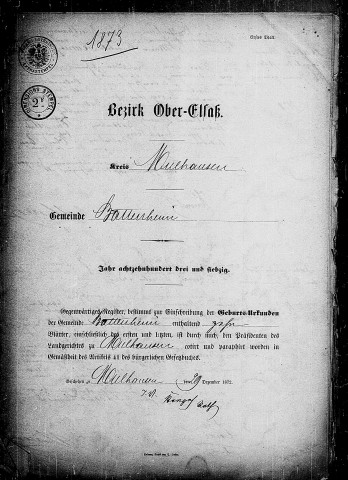 1873
Erstes Blatt.
2
Bezirk Ober-Elsaß.
Kreis Mülhausen
Gemeinde Battenheim
Jahr achtzehnhundert drei und siebzig.
Gegenwärtiges Register, bestimmt zur Einschreibung der Geburts-Urkunden
der Gemeinde Battenheim enthaltend zehn
Blätter, einschließlich des ersten und letzten, ist durch mich, den Präsidenten des
Landgerichts zu Mülhausen cotirt und paraphirt worden in
Gemäßheit des Artikels 41 des bürgerlichen Gesetzbuches.
Geschehen zu Mülhausen den 29 Dezember 1872.